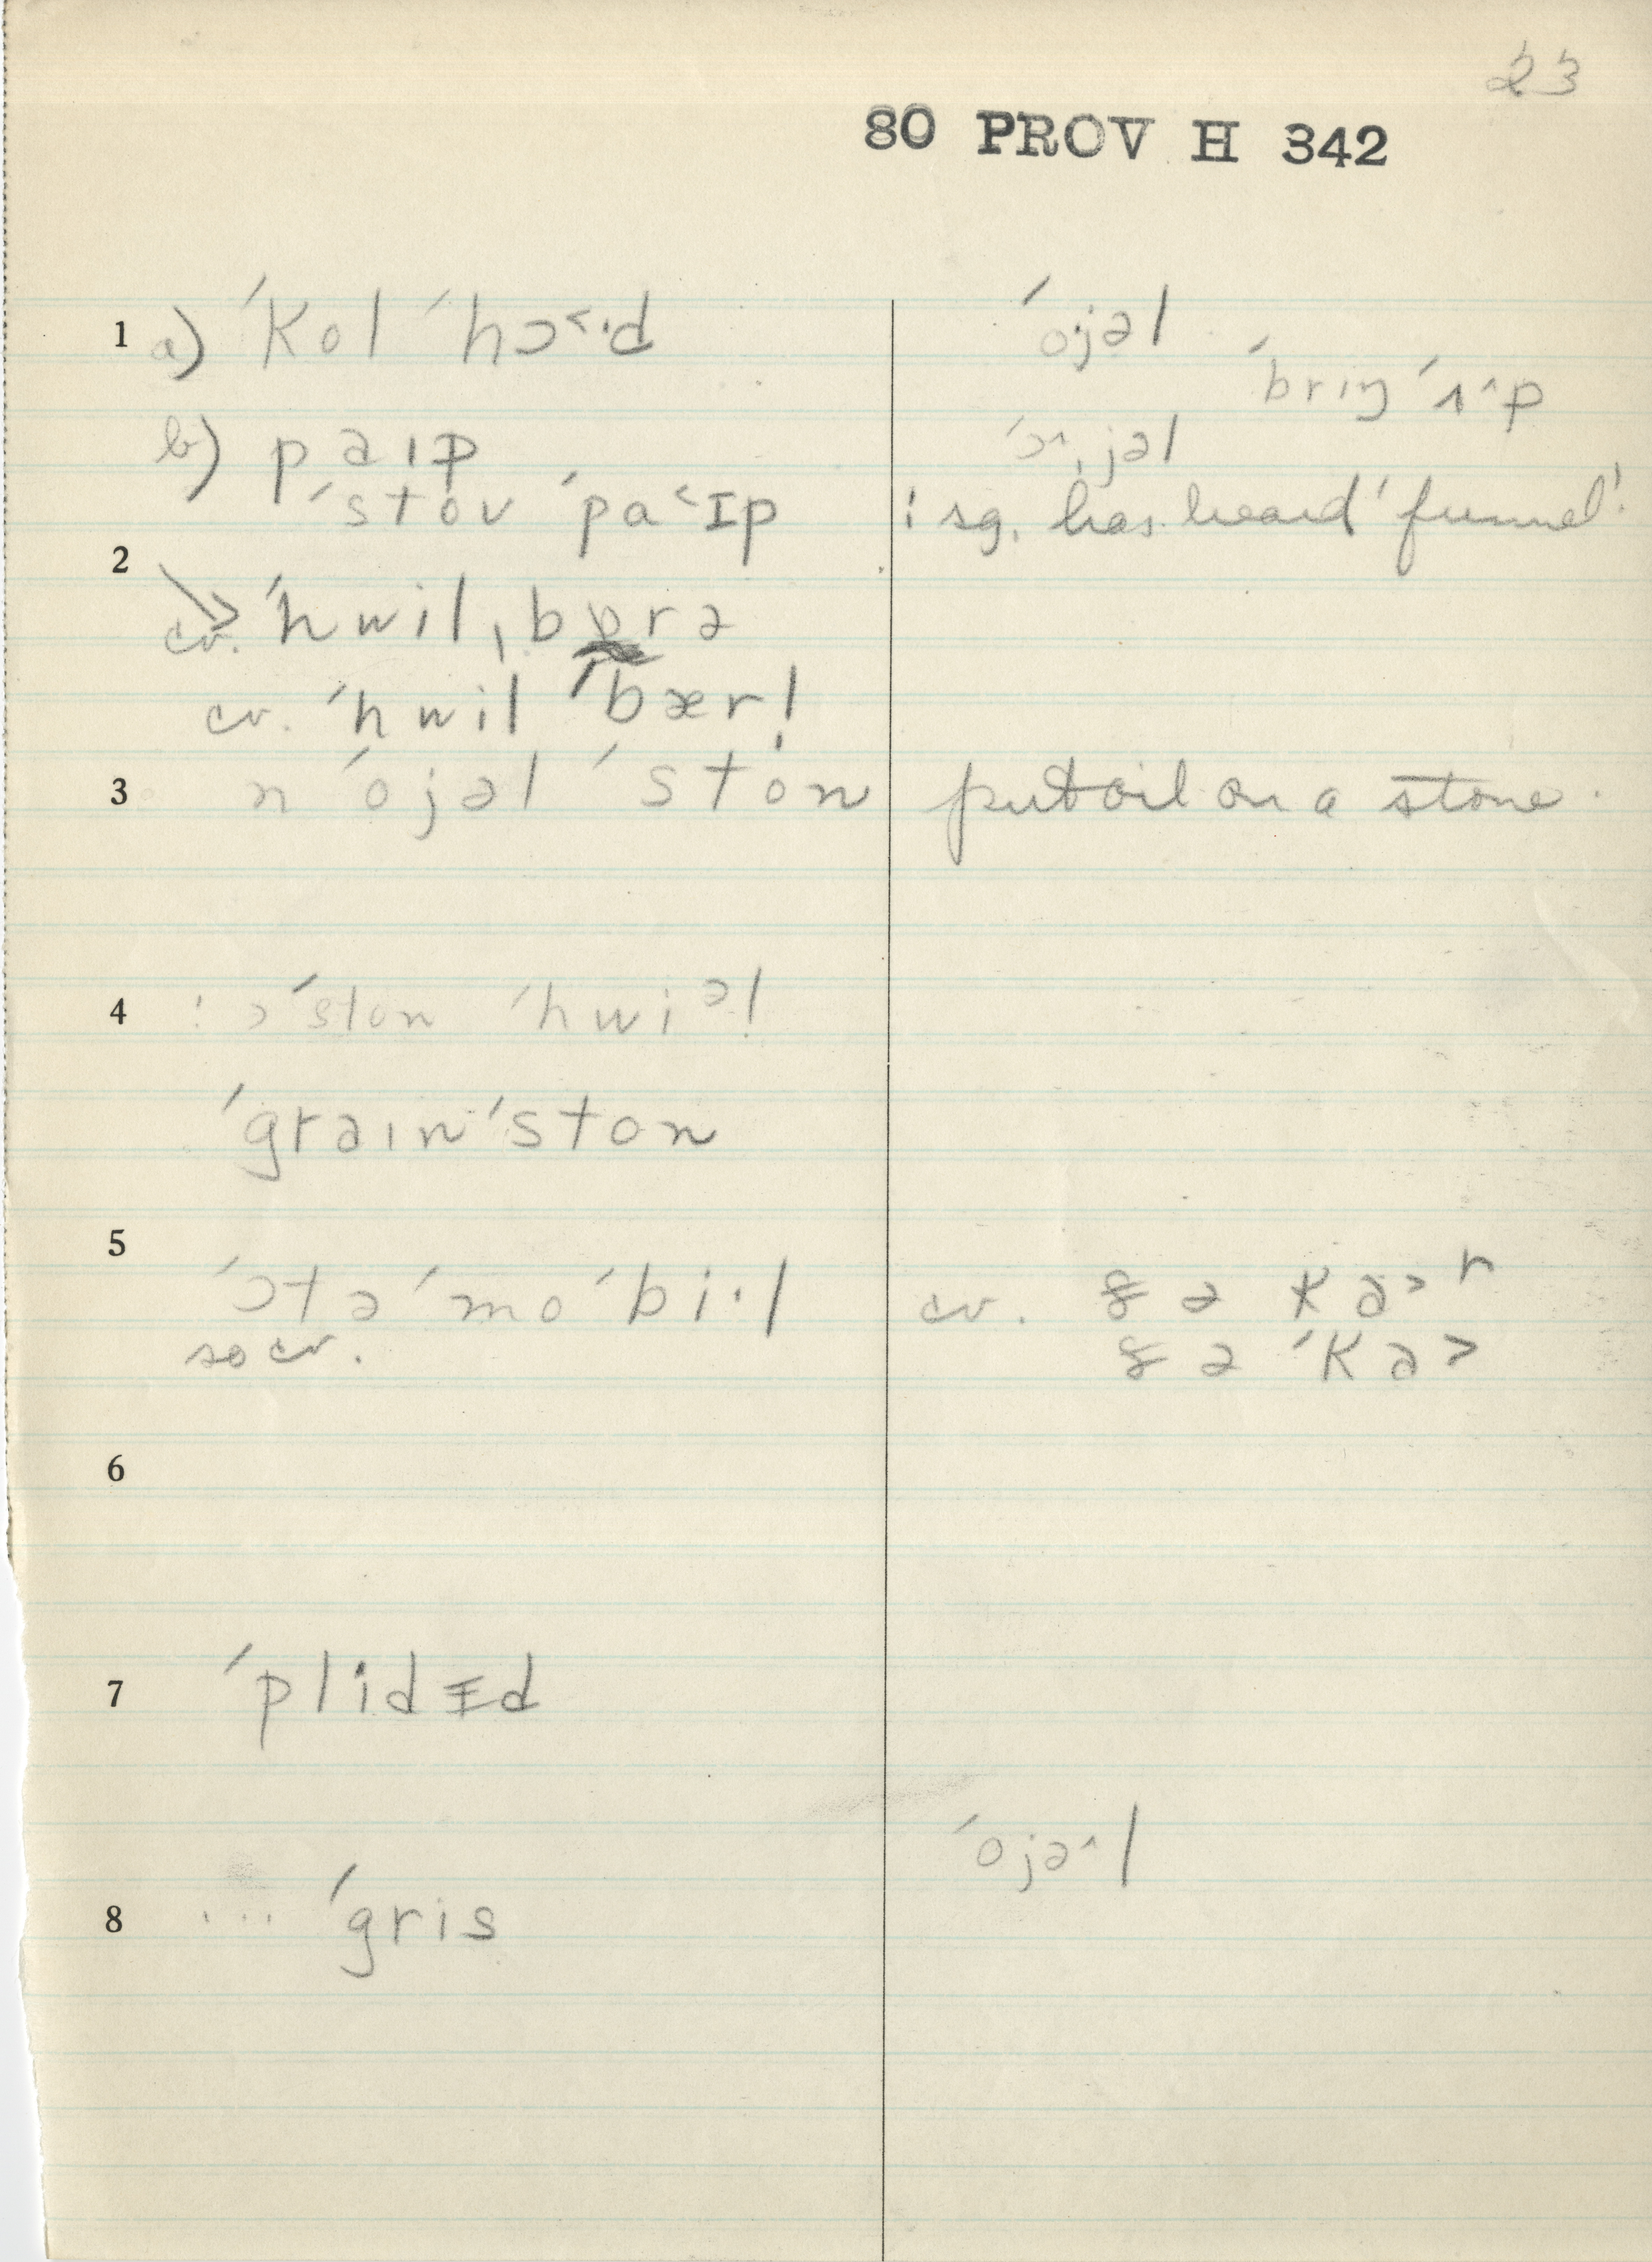 23
80 PROV H 342
1 a) ˈkol ˈhɔ˂·d
ˈojəl
ˈbrɪŋ ˈʌ^p
b) paɪp
ˈɔ^ˌjəl
ˈstov ˈpa˂ɪp
: sg. has heard 'funnel'.
2
cv. ˈhwilˌbɒrə
cv. ˈhwil ˈbær!
3 n ˈojəl ˈston
put oil on a stone.
4 : ə ˈston ˈhwiəl
ˈgraɪn ˈston
5
ˈɔtəˈmoˈbi·l
cv. ðə kaɚʳ
so cv.
ðə ˈka>
6
7 ˈplidɪd
ˈojə^l
8 ... ˈgris